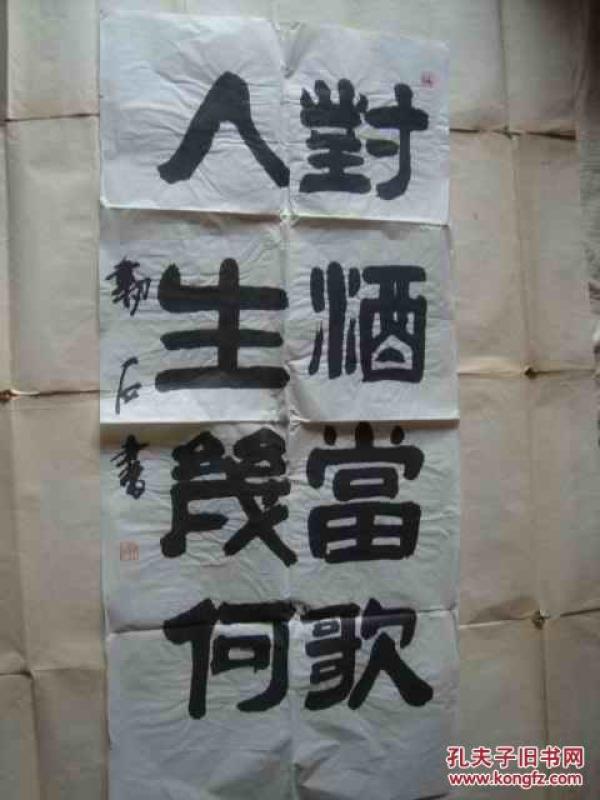 對酒當歌
人生幾何
石書
孔夫子旧书网
www.kongfz.com